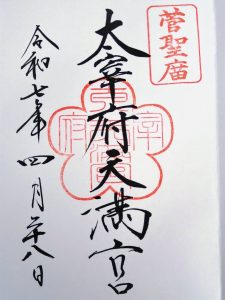 菅聖廟
太宰府天満宮
令和七年四月二十八日